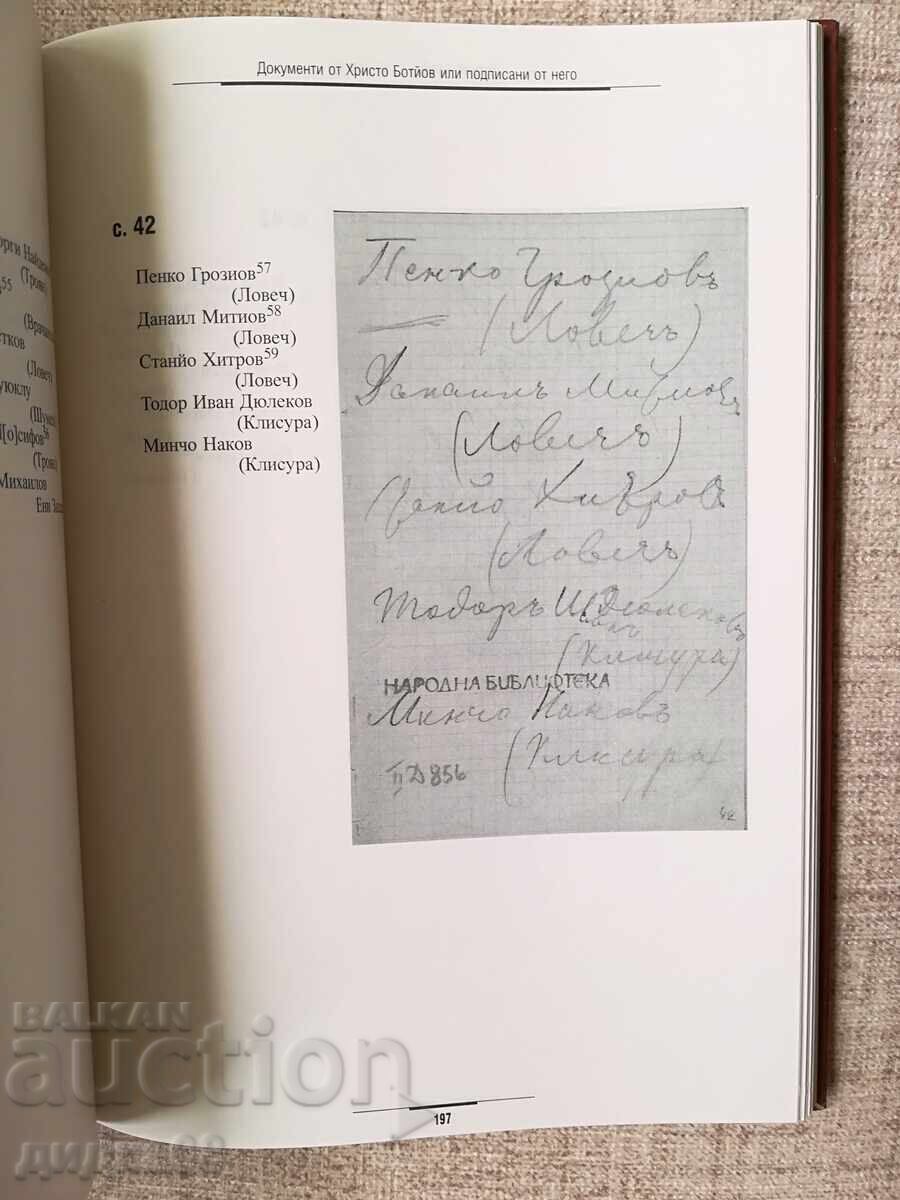 Документи от Христо Ботйов или подписани от него
с. 42
Пенко Грозиов57
(Ловеч)
Данаил Митиов58
(Ловеч)
Станйо Хитров59
(Ловеч)
Тодор Иван Дюлеков
(Клисура)
Минчо Наков
(Клисура)
55
тков
(Ловеч)
уюклу
[о]сифов56
Михаилов
Пенко Грозиовъ
(Ловечъ)
Данаилъ Митиовъ
(Ловечъ)
Хитров
(Ловечъ)
Тодоръ Дюлековъ
(Клисура)
НАРОДНА БИБЛИОТЕКА
Минчо Наковъ
(Клисура)
II D 856
42
197
BALKAN
auction